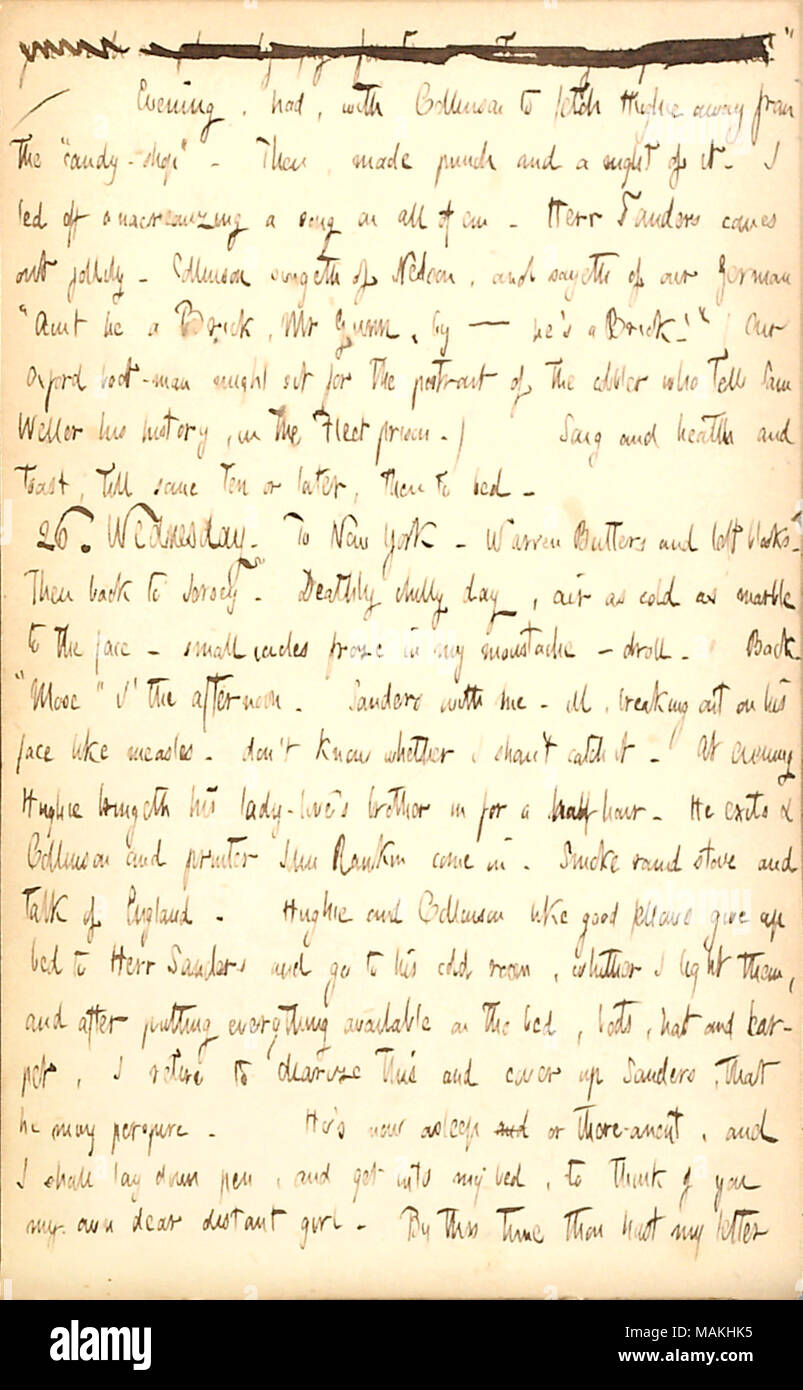 Evening, had, with Collinson to fetch Hughie away from
the "candy-shop" - Then, made punch and a night of it - I
led off anacreonizing a song on all of em - Herr Sanders comes
out jollily - Collinson singeth of Nelson, and sayeth of our German
"Aint he a Brick, Mr Gunn, by — he's a Brick!" (Our
Oxford boot-man might sit for the portrait of the cobler who tells Sam
Weller his history, in the Fleet prison.) Song and health and
toast, till some ten or later, then to bed -
26. Wednesday. To New York - Warren Butters and left blocks -
Then back to Jersey - Deathly chilly day, air as cold as marble
to the face - small icicles froze in my moustache - droll - Back
"Mose" i' the afternoon - Sanders with me - ill, breaking out on his
face like measles - don't know whether I shan't catch it - At evening
Hughie bringeth his lady-love's brother in for a half hour - He exits &
Collinson and printer Jim Rankin come in - Smoke round stove and
talk of England - Hughie and Collinson like good fellows give up
bed to Herr Sanders and go to his cold room, whither I light them,
and after putting everything available on the bed, boots, hat and kar-
pet, I retire to diarize this and cover up Sanders, that
he may perspire - He's now asleep and or there-anent, and
I shall lay down pen, and get into my bed, to think of you
my own dear distant girl - By this time thou hast my letter
alamy
Image ID: MAKHK5
www.alamy.com